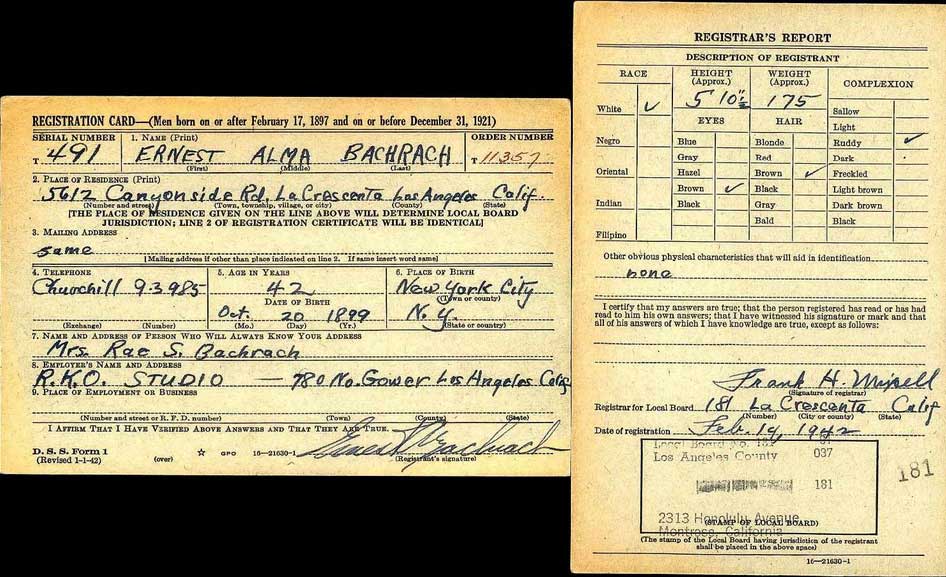 REGISTRATION CARD—(Men born on or after February 17, 1897 and on or before December 31, 1921)
SERIAL NUMBER 1. NAME (Print) ORDER NUMBER
T 491 ERNEST ALMA BACHRACH T 11357
(First) (Middle) (Last)
2. PLACE OF RESIDENCE (Print)
5612 Canyonside Rd. La Crescenta Los Angeles Calif.
(Number and street) (Town, township, village, or city) (County) (State)
[THE PLACE OF RESIDENCE GIVEN ON THE LINE ABOVE WILL DETERMINE LOCAL BOARD
JURISDICTION; LINE 2 OF REGISTRATION CERTIFICATE WILL BE IDENTICAL]
3. MAILING ADDRESS
same
[Mailing address if other than place indicated on line 2. If same insert word same]
4. TELEPHONE 5. AGE IN YEARS 6. PLACE OF BIRTH
Churchill 9-3985 42 New York City
DATE OF BIRTH (Town or county)
Oct. 20 1899 N. Y.
(Exchange) (Number) (Mo.) (Day) (Yr.) (State or country)
7. NAME AND ADDRESS OF PERSON WHO WILL ALWAYS KNOW YOUR ADDRESS
Mrs. Rae S. Bachrach
8. EMPLOYER'S NAME AND ADDRESS
R.K.O. STUDIO — 780 No. Gower Los Angeles Calif
9. PLACE OF EMPLOYMENT OR BUSINESS
(Number and street or R. F. D. number) (Town) (County) (State)
I AFFIRM THAT I HAVE VERIFIED ABOVE ANSWERS AND THAT THEY ARE TRUE.
D. S. S. Form 1
(Revised 1-1-42) (over) ☆ GPO 16—21630-1 Ernest Bachrach
(Registrant's signature)
REGISTRAR'S REPORT
DESCRIPTION OF REGISTRANT
RACE HEIGHT (Approx.) WEIGHT (Approx.) COMPLEXION
5' 10½" 175
White ✓ Sallow
EYES HAIR Light
Negro Blue Blonde Ruddy ✓
Gray Red Dark
Oriental Hazel Brown ✓ Freckled
Brown ✓ Black Light brown
Indian Black Gray Dark brown
Bald Black
Filipino
Other obvious physical characteristics that will aid in identification
none
I certify that my answers are true; that the person registered has read or has had
read to him his own answers; that I have witnessed his signature or mark and that
all of his answers of which I have knowledge are true, except as follows:
Frank H.
(Signature of registrar)
Registrar for Local Board 181 La Crescenta Calif
(Number) (City or county) (State)
Date of registration Feb. 14, 1942
Local Board No. 181
Los Angeles County 037
181
181
2313 Honolulu Avenue
(STAMP OF LOCAL BOARD)
Montrose, California
(The stamp of the Local Board having jurisdiction of the registrant
shall be placed in the above space)
16—21630-1